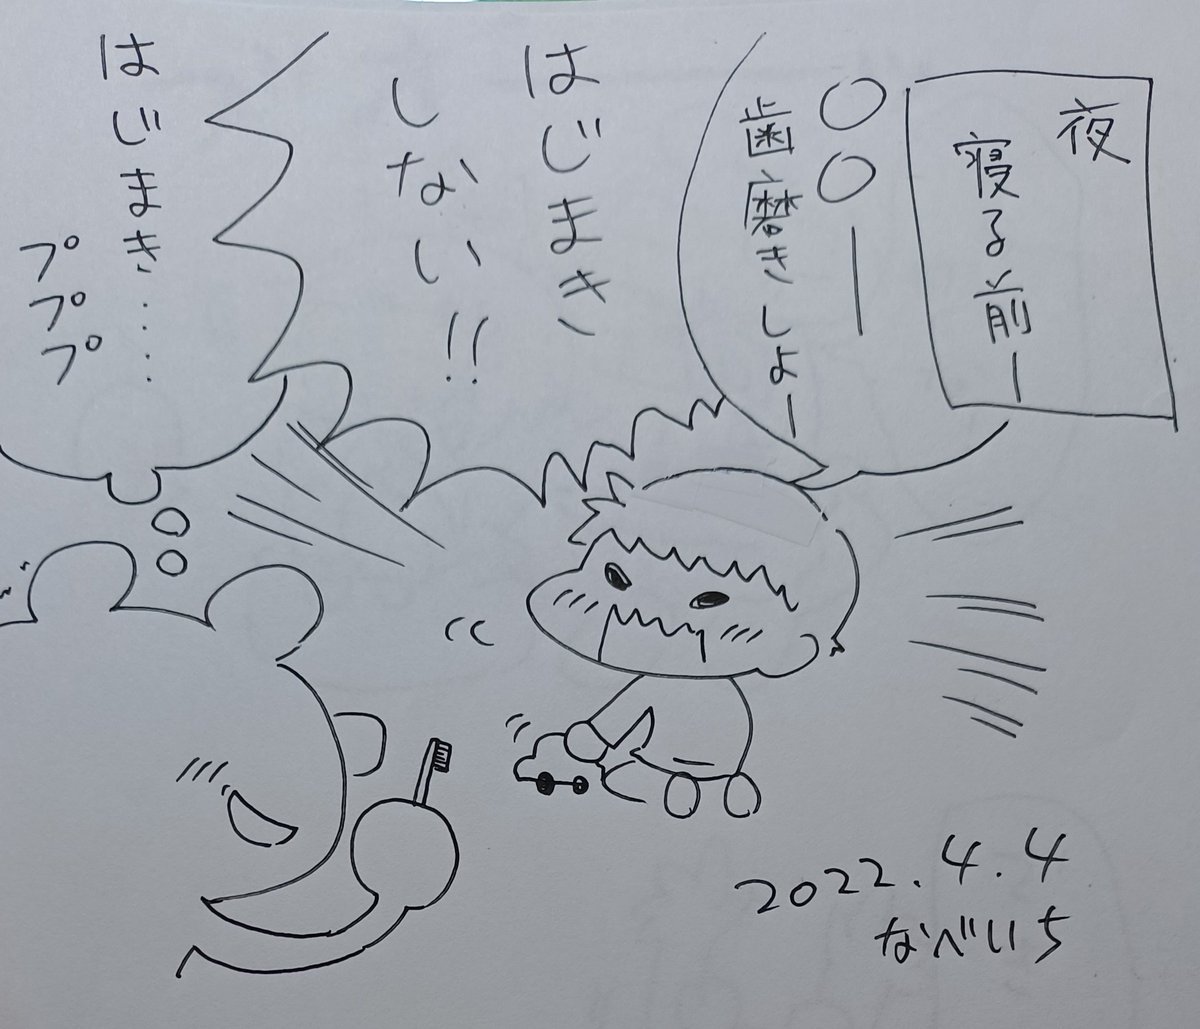 夜
寝る前ー
〇〇ー
歯磨きしよー
はじまき
しない!!
はじまき……
プププ
2022.4.4
なべいち